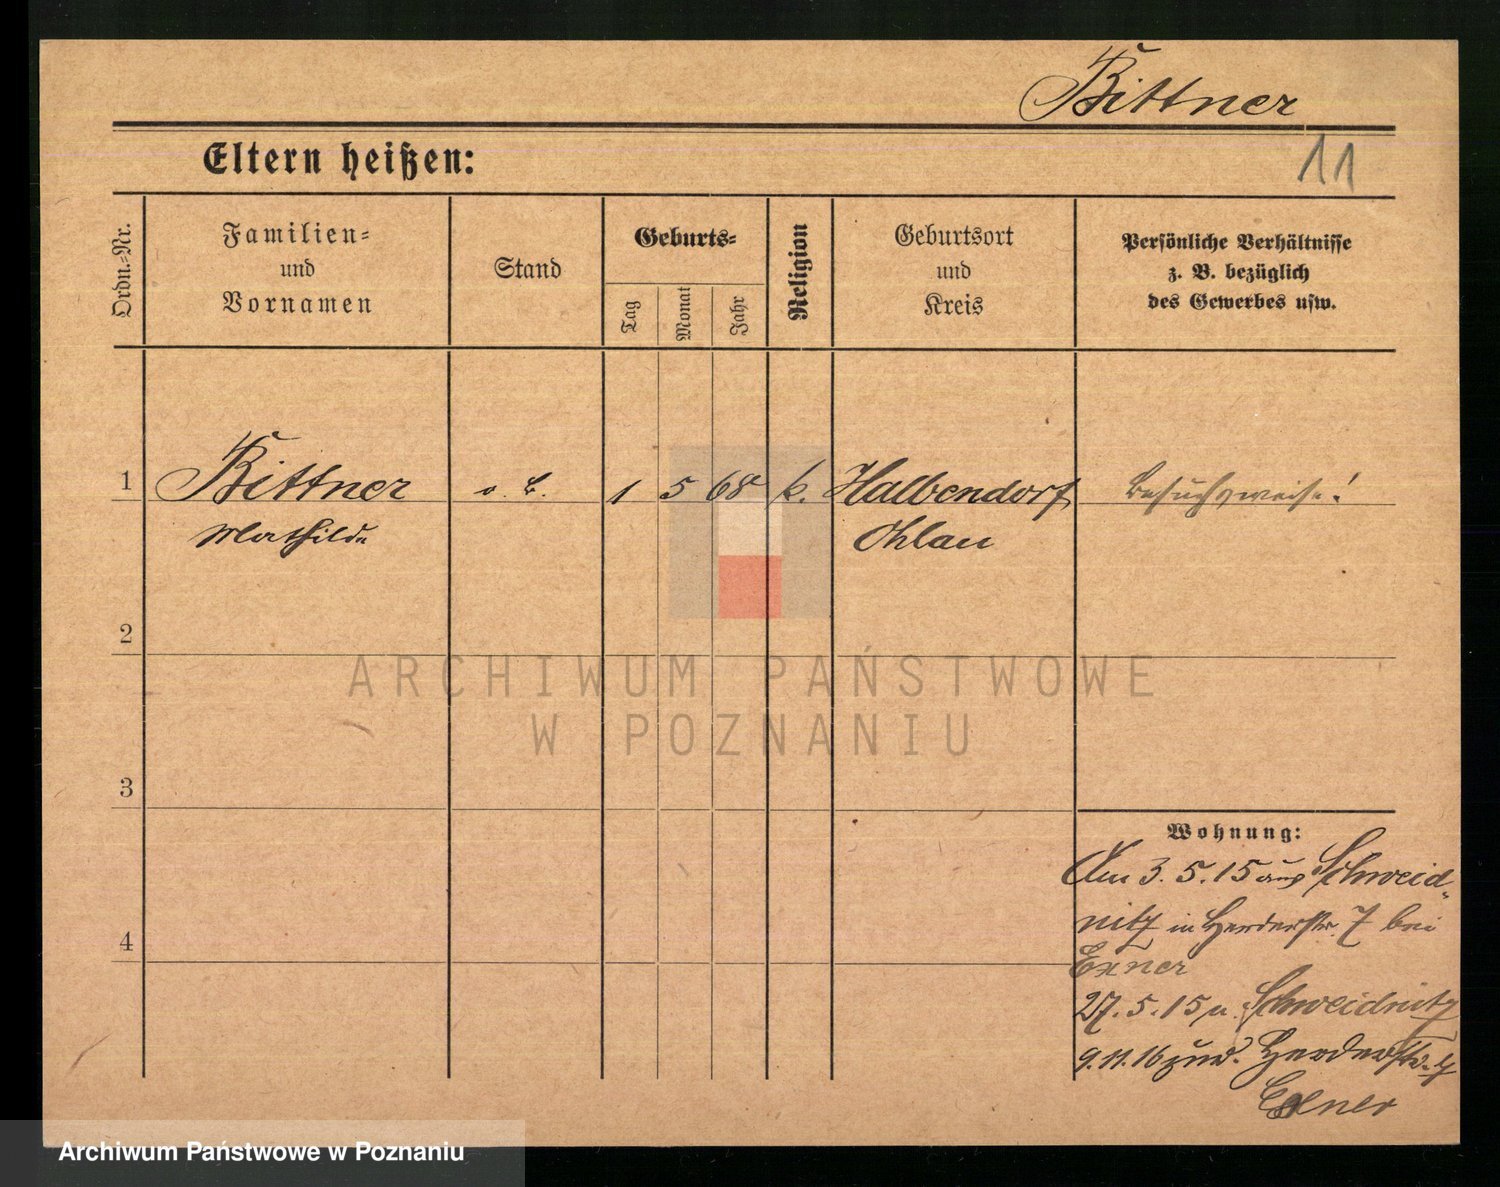 Bittner
11
Eltern heißen:
Ordn.-Nr.
Familien-
und
Vornamen
Stand
Geburts-
Tag
Monat
Jahr
Religion
Geburtsort
und
Kreis
Persönliche Verhältnisse
z. B. bezüglich
des Gewerbes usw.
1 Bittner o. B. 1 5 68 k. Halbendorf besuchsweise!
Mathilde Ohlau
2
3
4
ARCHIWUM PAŃSTWOWE
W POZNANIU
Wohnung:
Am 3.5.15 aus Schweid-
nitz in Herderstr. 7 bei
Exner
27.5.15 n. Schweidnitz
9.11.16 zur. Herderstr. 7
Exner
Archiwum Państwowe w Poznaniu